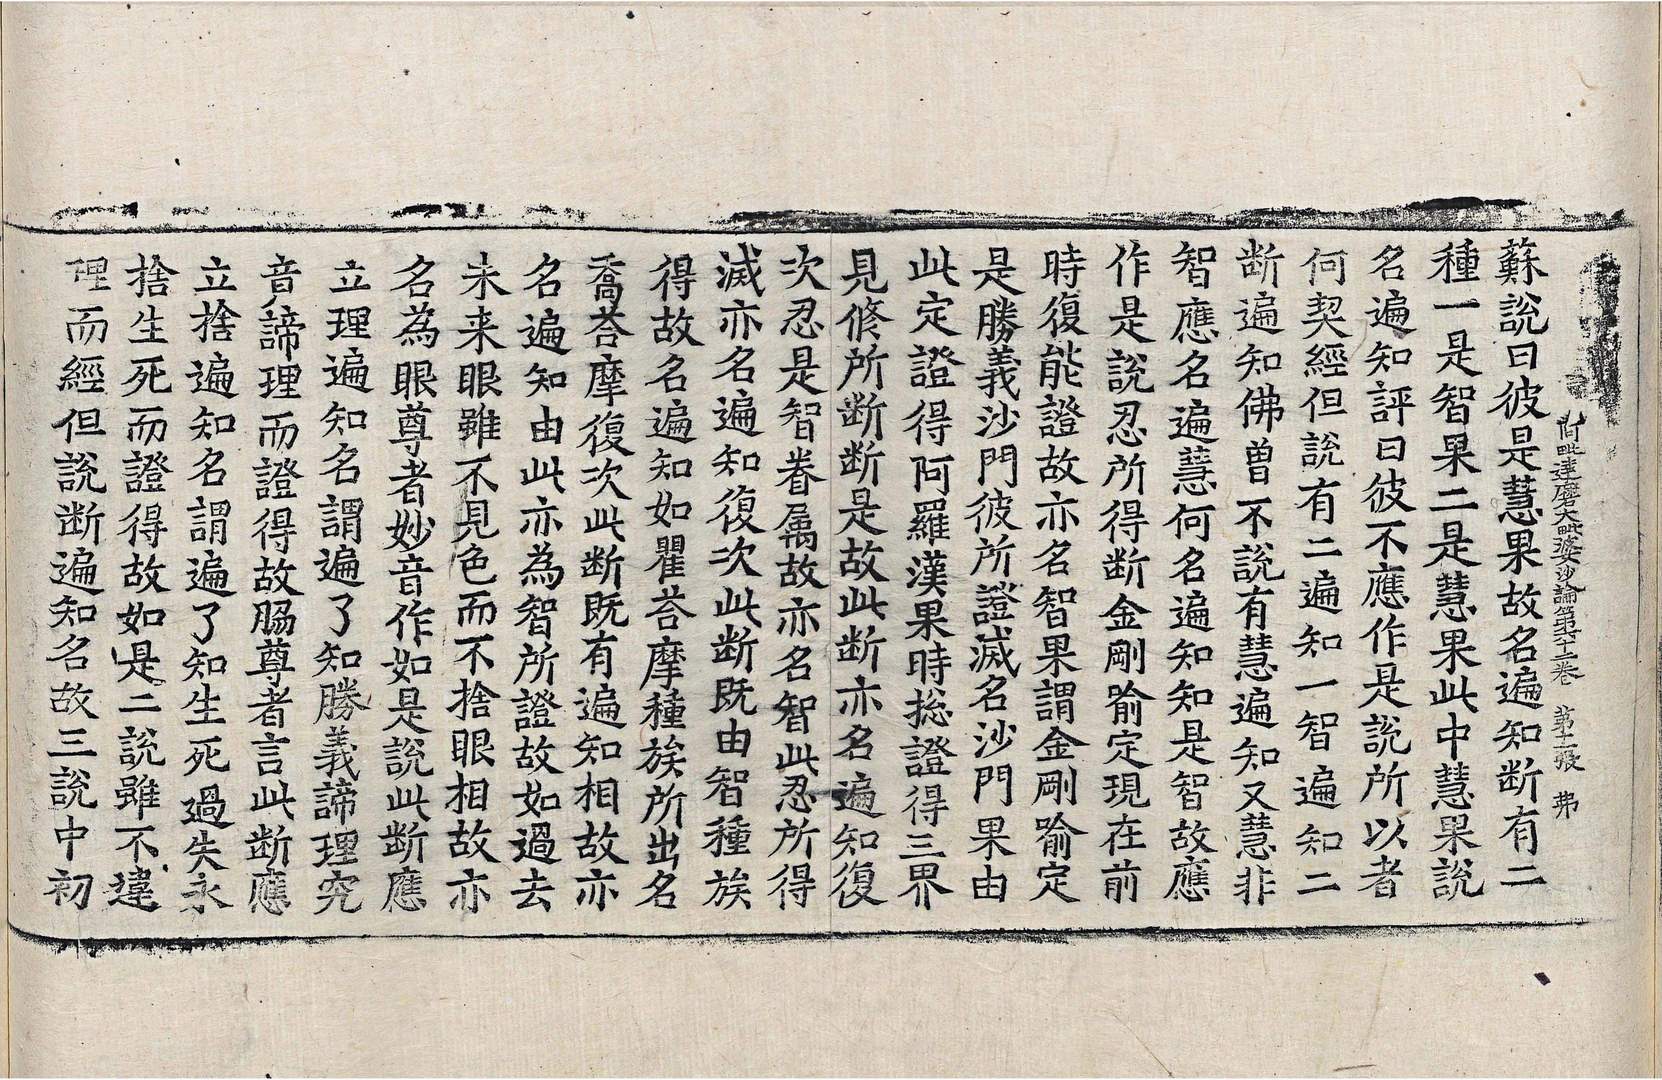 阿毗達磨大毗婆沙論第六十二卷 第十二張 弗
蘇說曰彼是慧果故名遍知断有二
種一是智果二是慧果此中慧果說
名遍知評曰彼不應作是說所以者
何契經但說有二遍知一智遍知二
断遍知佛曾不說有慧遍知又慧非
智應名遍慧何名遍知知是智故應
作是說忍所得断金剛喻定現在前
時復能證故亦名智果謂金剛喻定
是勝義沙門彼所證滅名沙門果由
此定證得阿羅漢果時揔證得三界
見修所断断是故此断亦名遍知復
次忍是智眷属故亦名智此忍所得
滅亦名遍知復次此断既由智種族
得故名遍知如瞿荅摩種族所出名
喬荅摩復次此断既有遍知相故亦
名遍知由此亦為智所證故如過去
未来眼雖不見色而不捨眼相故亦
名為眼尊者妙音作如是說此断應
立理遍知名謂遍了知勝義諦理究
音諦理而證得故脇尊者言此断應
立捨遍知名謂遍了知生死過失永
捨生死而證得故如是二說雖不違
理而經但說断遍知名故三說中初